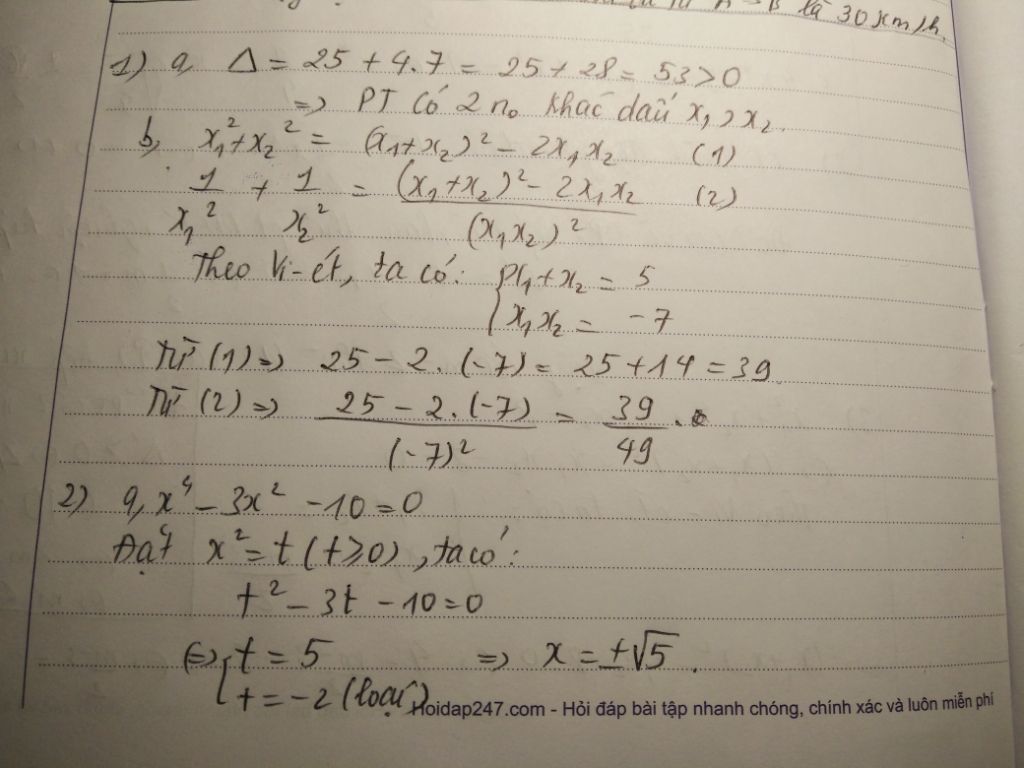 B là 30 km/h.
1) a, Δ = 25 + 4.7 = 25 + 28 = 53 > 0
=> PT có 2 no khác dấu x₁, x₂.
b, x₁² + x₂² = (x₁+x₂)² - 2x₁x₂ (1)
1/x₁² + 1/x₂² = ((x₁+x₂)² - 2x₁x₂)/(x₁x₂)² (2)
Theo Vi-ét, ta có: { x₁+x₂ = 5
x₁x₂ = -7
Từ (1) => 25 - 2.(-7) = 25 + 14 = 39
Từ (2) => (25 - 2.(-7))/(-7)² = 39/49.
2) a, x⁴ - 3x² - 10 = 0
Đặt x² = t (t ≥ 0), ta có:
t² - 3t - 10 = 0
<=> [ t = 5 => x = ±√5.
t = -2 (loại)
Hoidap247.com - Hỏi đáp bài tập nhanh chóng, chính xác và luôn miễn phí